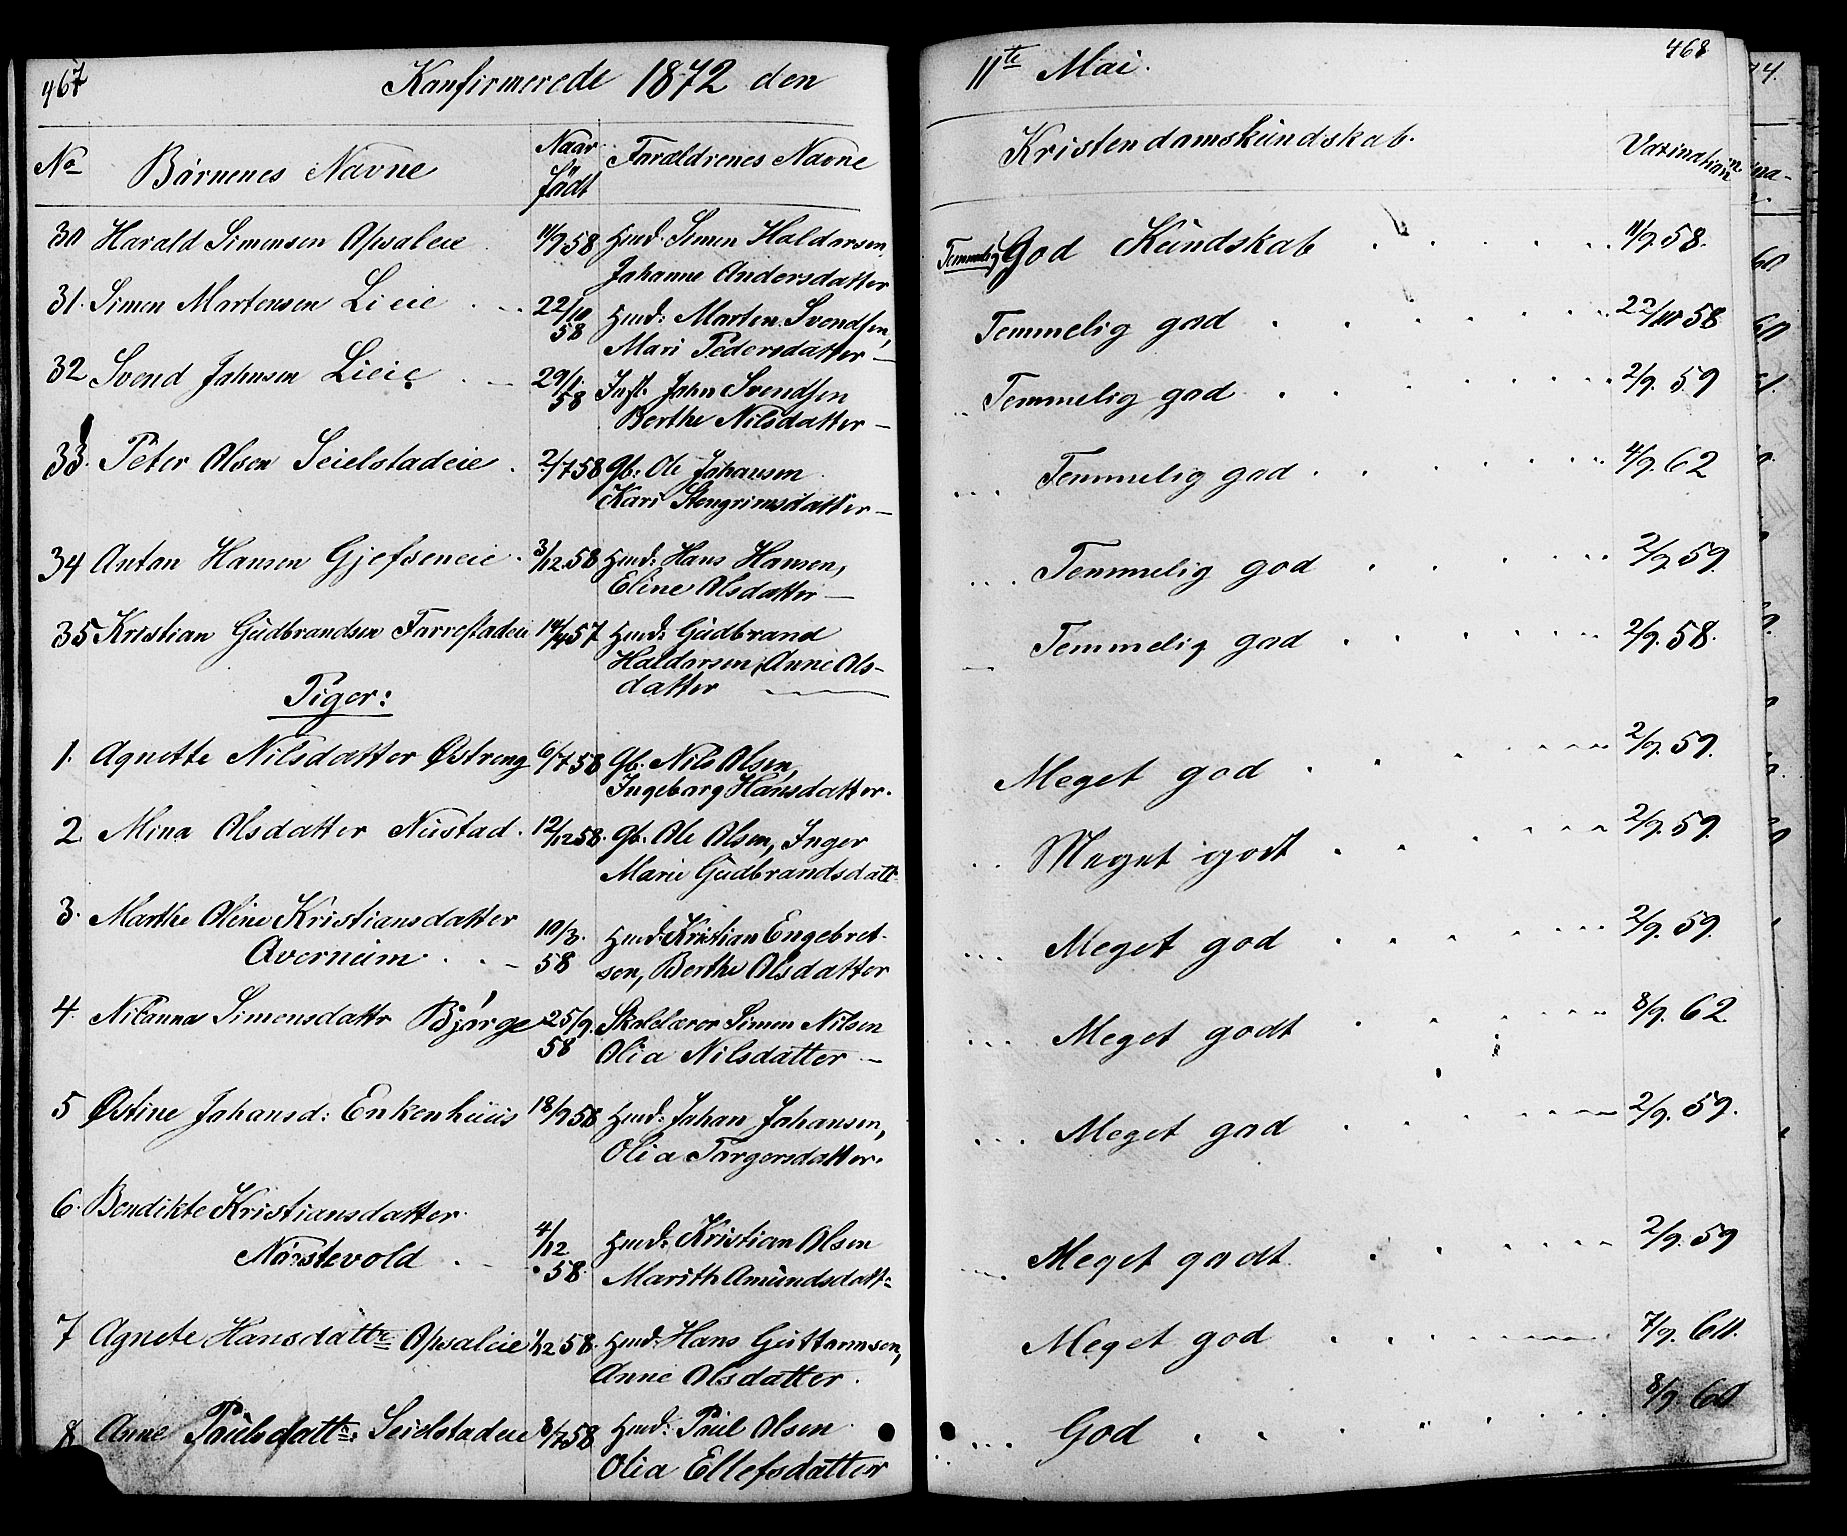 467 Konfirmerede 1872 den
No Börnenes Navne Naar födt Forældrenes Navne
30 Harald Simensen Opsaleie 11/9 58 Hmd. Simen Haldorsen,
Johanne Andersdatter
31. Simen Martensen Lieie 22/10 58 Hmd: Marten Svendsen,
Mari Pedersdatter —
32 Svend Johnsen Lieie 29/1. 58 Inst. John Svendsen
Berthe Nilsdatter —
33. Peter Olsen Seielstadeie 2/7 58 Gb: Ole Johansen
Kari Stengrimsdatter —
34 Anton Hansen Gjefseneie 3/12 58 Hmd: Hans Hansen,
Eline Olsdatter —
35 Kristian Gudbrandsen Farrestadeie 14/4 57 Hmd: Gudbrand
Haldorsen, Anne Ols-
datter
Piger:
1. Agnette Nilsdatter Østreng 6/7 58 Gb. Nils Olsen,
Ingeborg Hansdatter.
2. Mina Olsdatter Nustad 12/12 58. Gb. Ole Olsen, Inger
Marie Gudbrandsdatt
3. Marthe Oline Kristiansdatter
Avernum 10/3. 58 Hmd: Kristian Engebret-
sen, Berthe Olsdatter
4. Nilanna Simensdattr Bjørge 25/9. 58 Skolelærer Simen Nilsen
Olia Nilsdatter —
5 Østine Johansd: Enkenhuus 18/9 58 Hmd: Johan Johansen,
Olia Torgersdatter.
6. Bendikte Kristiansdatter
Nørstevold 4/12 58. Hmd: Kristian Olsen
Marith Amundsdatt:
7 Agnete Hansdattr Opsaleie 1/12 58. Hmd: Hans Guttormsen,
Anne Olsdatter.
8 Anne Poulsdattr: Seielstadeie 8/7 58 Hmd: Poul Olsen
Olia Ellefsdatter
11te Mai. 468
Kristendomskundskab. Vaxination
Temmelig God Kundskab 11/9. 58.
Temmelig god 22/10 58
Temmelig god 2/9. 59
Temmelig god 4/9. 62
Temmelig god 2/9 59.
Temmelig god 2/9. 58.
Meget god 2/9. 59.
Meget godt 2/9. 59.
Meget god 2/9. 59.
Meget godt 8/9. 62
Meget god 2/9. 59.
Meget godt 2/9. 59
Meget god 7/9. 60.
God 8/9. 60